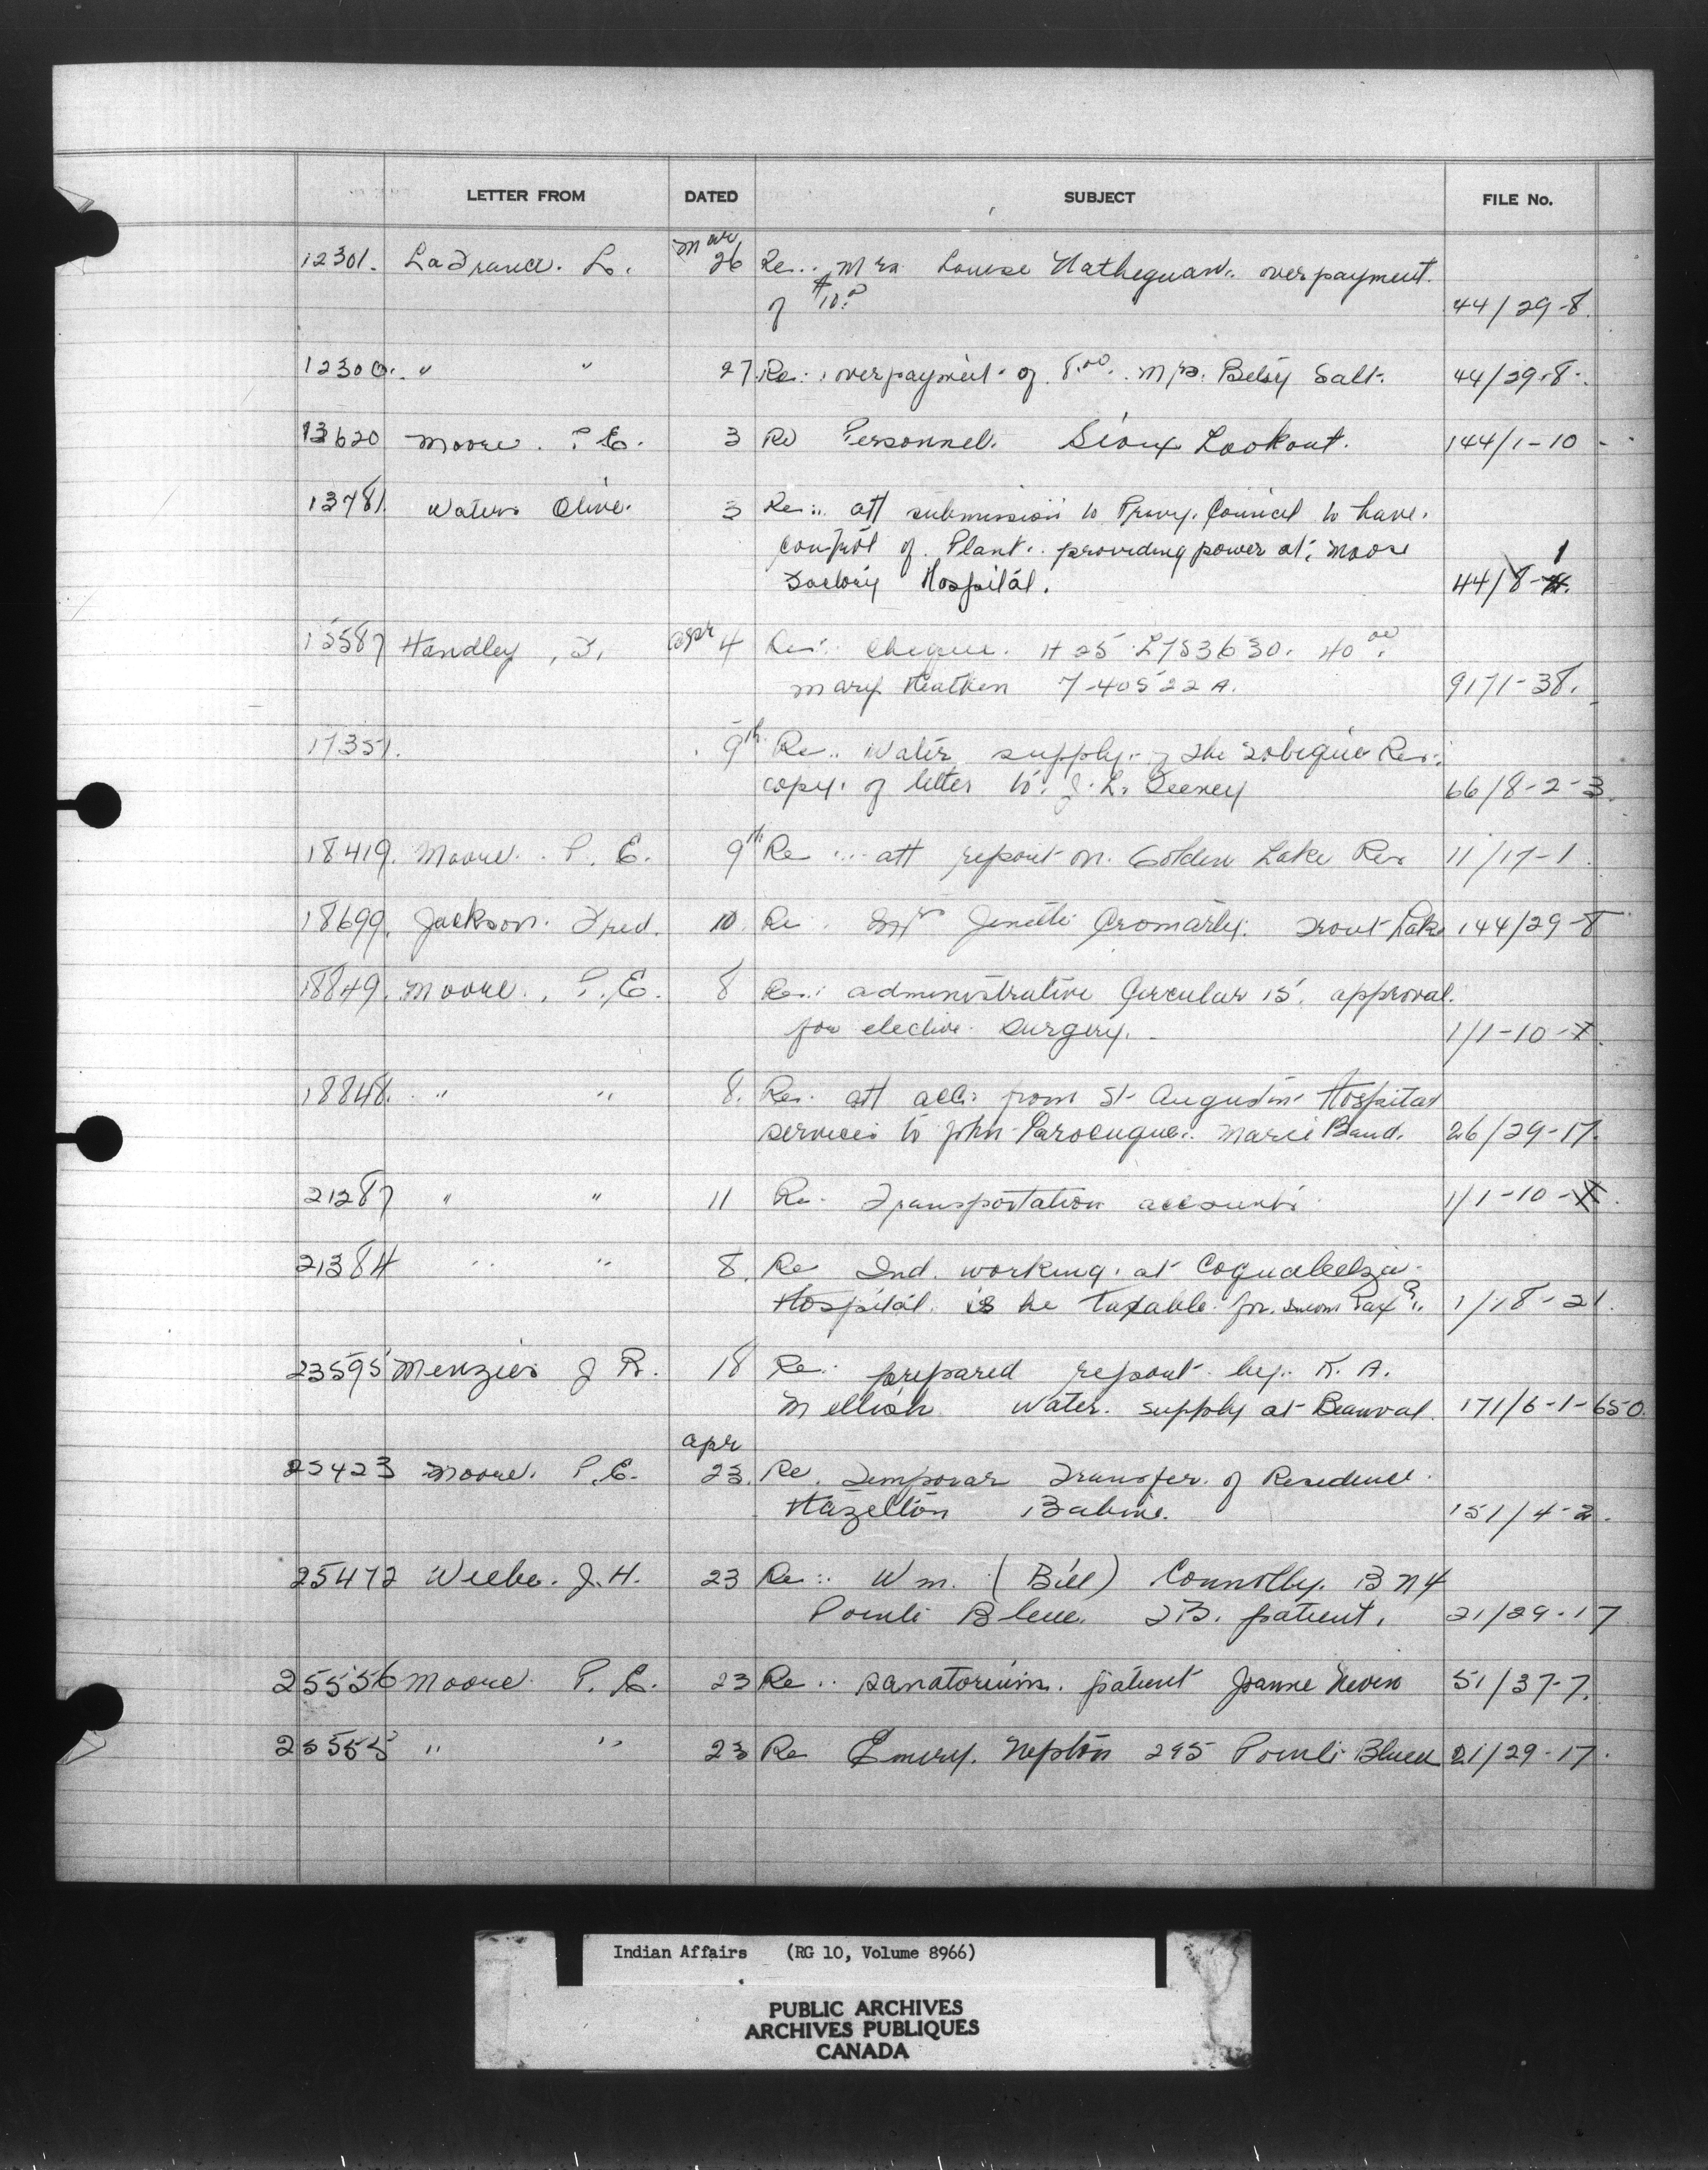 LETTER FROM DATED SUBJECT FILE No.
12301. LaFrance. L. Mar 26 Re.. Mrs Louise overpayment.
of $10.00 44/29-8.
12300. " " 27. Re: overpayment of 8.00. Mrs. Betsy Salt. 44/29-8.
13620 Moore. P.E. 3 Re Personnel. Sioux Lookout. 144/1-10 -
13781. Waters Olive. 3 Re:. att submission to Privy. Council to have.
control of. Plant.. providing power at. Moose
Factory Hospital. 44/8-1
Handley, F. Apr 4 Re:. Cheque. H 25 L753630. 40.00
Mary 7-40522 A. 9171-38.
17351. 9th Re.. Water supply. of the Tobique Res:
copy. of letter to. J. L. Deeney 66/8-2-3.
18419. Moore. P. E. 9th Re ... att report on. Golden Lake Res 11/17-1.
18699. Jackson. Fred. 10. Re. Cromarty. Trout Lake 144/29-8
18849. Moore., P.E. 8 Re.: administrative Circular 15. approval.
for elective. surgery. 1/1-10-
18848. " " 8. Re. att acc. from St Augustine Hospital
services to John Maria Band. 26/29-17.
21287 " " 11 Re. Transportation accounts 1/1-10-
21384 " " 8. Re Ind. working. at Coqualeetza.
Hospital. is he taxable. for. income Tax? 1/18-21.
23595 Menzies J R. 18 Re. prepared report by. K. A.
Mellish Water. supply at Beauval. 171/6-1-650.
25423 Moore. P.E. Apr 23. Re. Temporar Transfer. of Residence.
Hazelton Babine. 151/4-2.
25472 J.H. 23 Re:. Wm. (Bill) Connolly.
Blue. TB. patient. 21/29-17
25556 Moore P. E. 23 Re.. sanatorium. patient Joanne 51/37-7.
25555 " " 23 Re Emery. Nepton 295 Pointe Bleue 21/29-17.
Indian Affairs (RG 10, Volume 8966)
PUBLIC ARCHIVES
ARCHIVES PUBLIQUES
CANADA